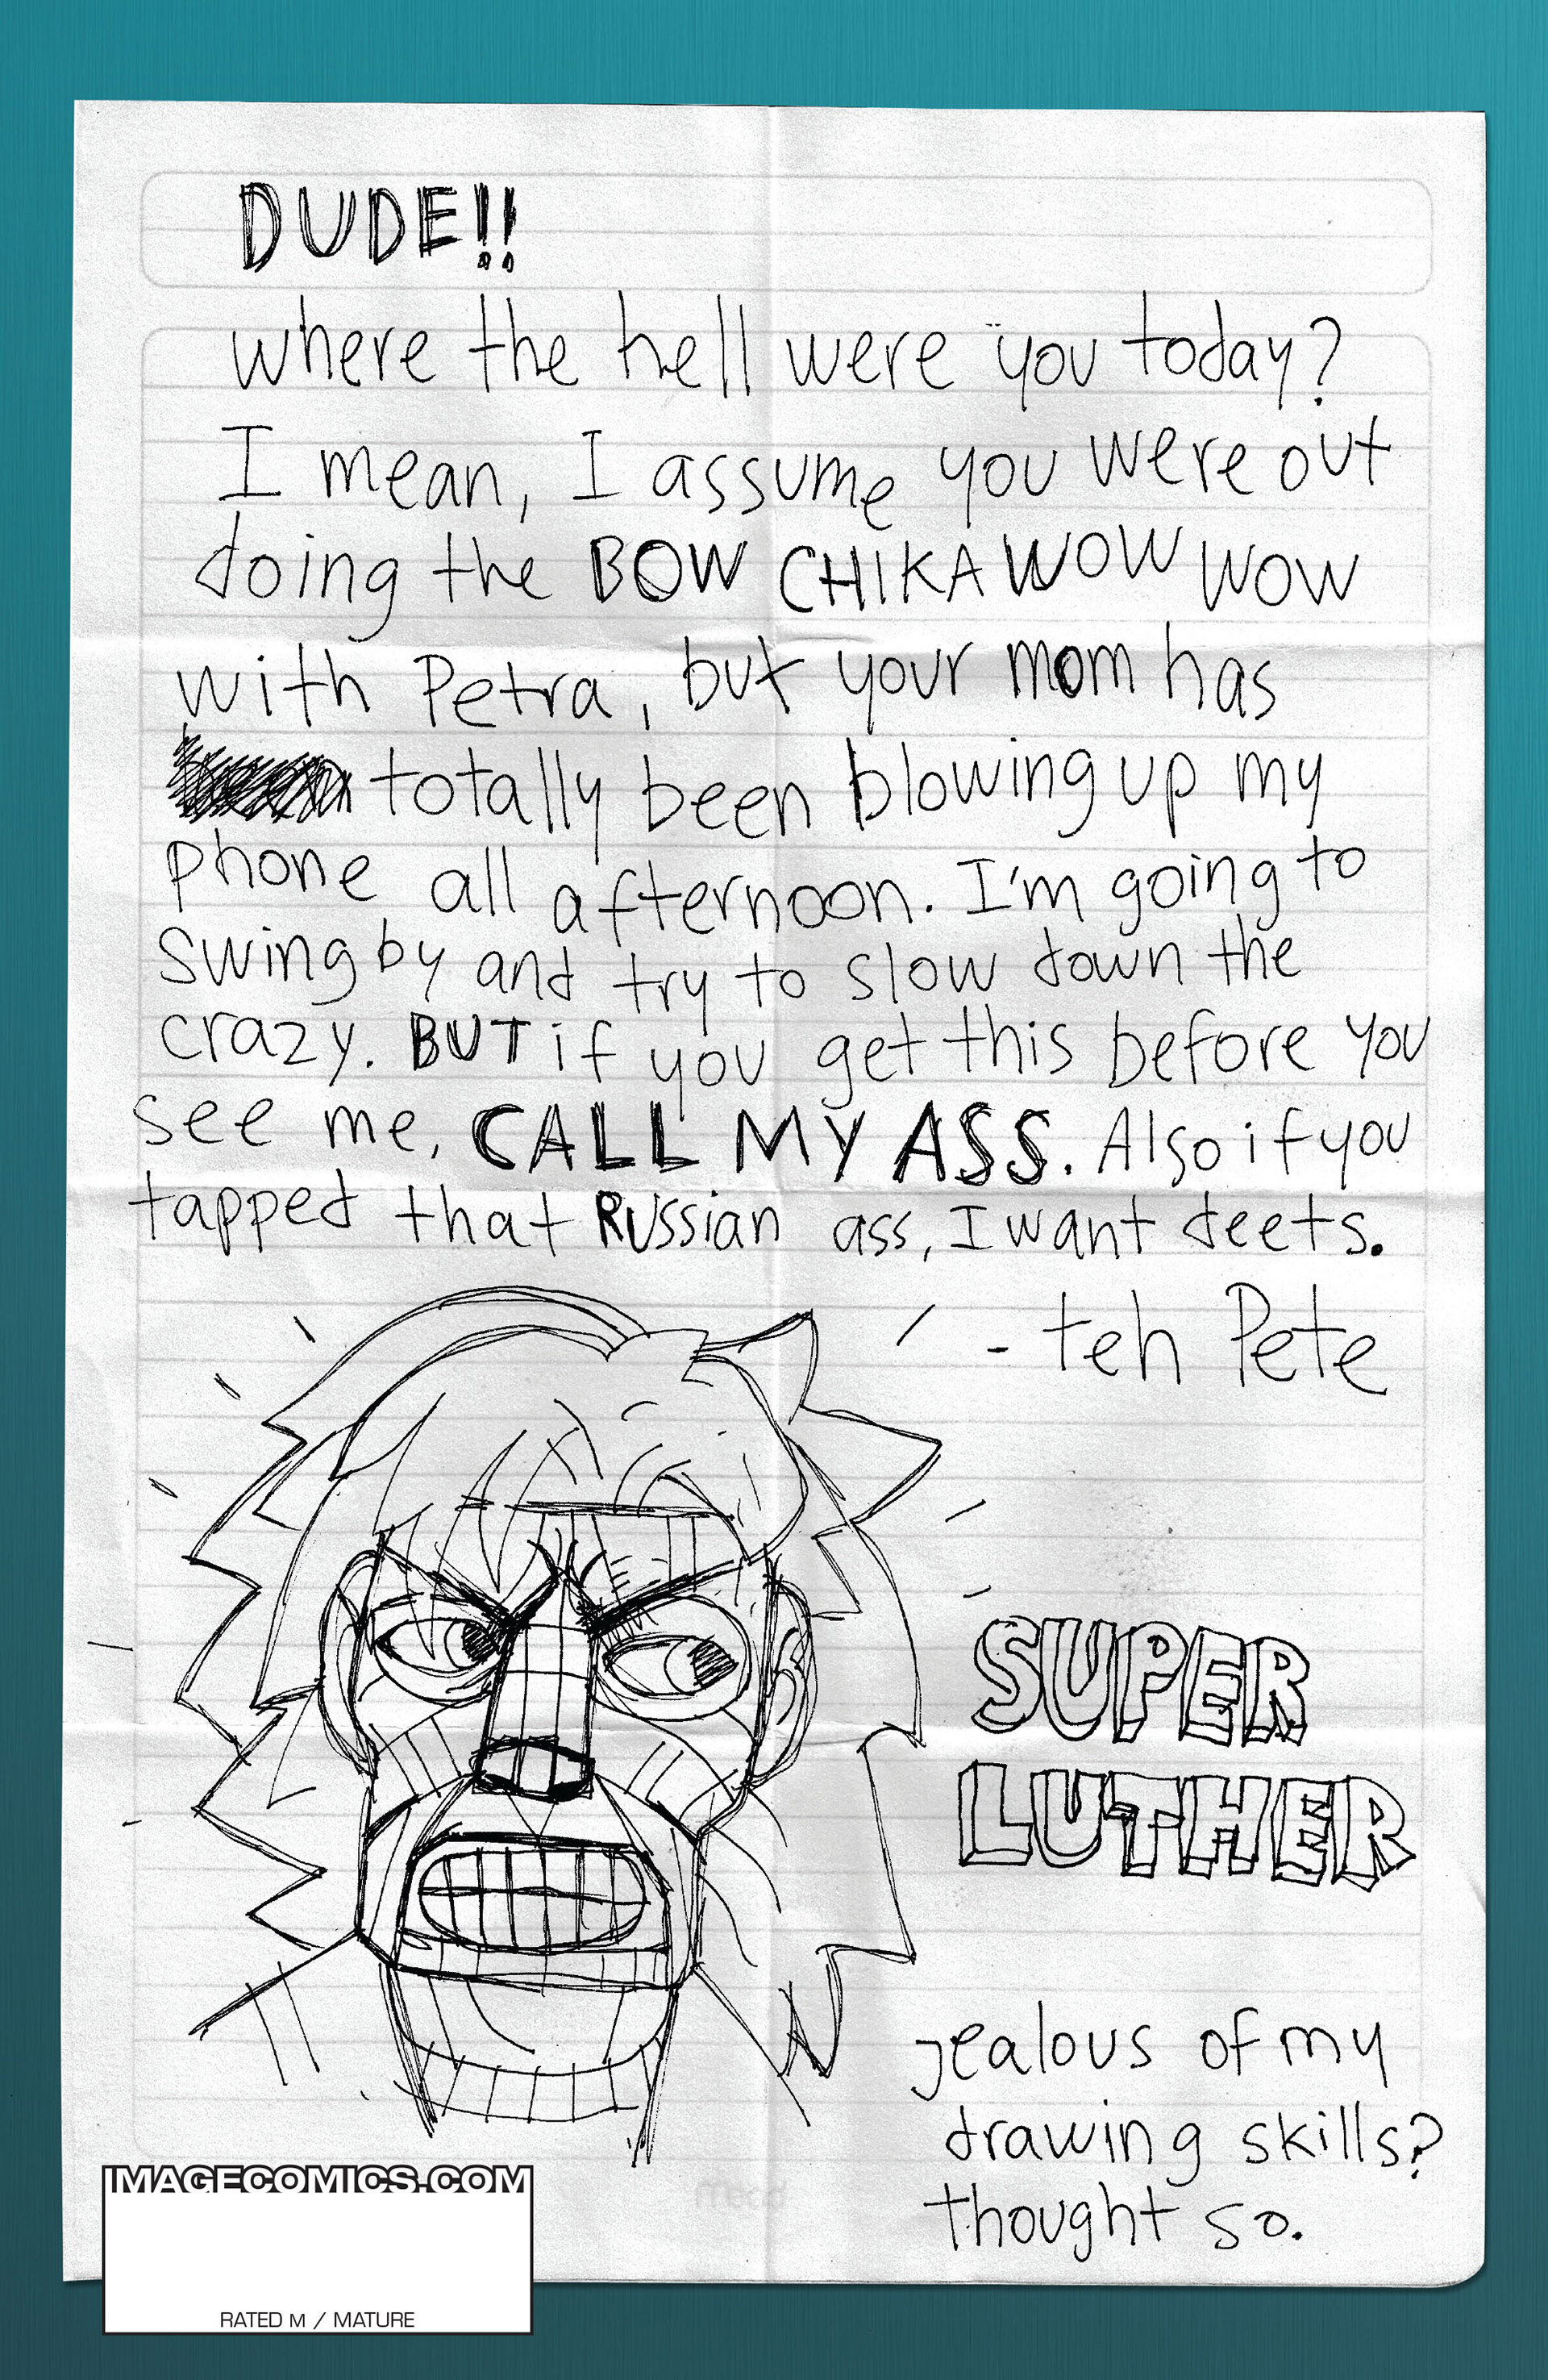 DUDE!!
where the hell were you today?
I mean, I assume you were out
doing the BOW CHIKA WOW WOW
with Petra, but your mom has
totally been blowing up my
phone all afternoon. I'm going to
swing by and try to slow down the
crazy. BUT if you get this before you
see me, CALL MY ASS. Also if you
tapped that Russian ass, I want deets.
- teh Pete
SUPER
LUTHER
jealous of my
drawing skills?
thought so.
Mead
IMAGECOMICS.COM
RATED M / MATURE